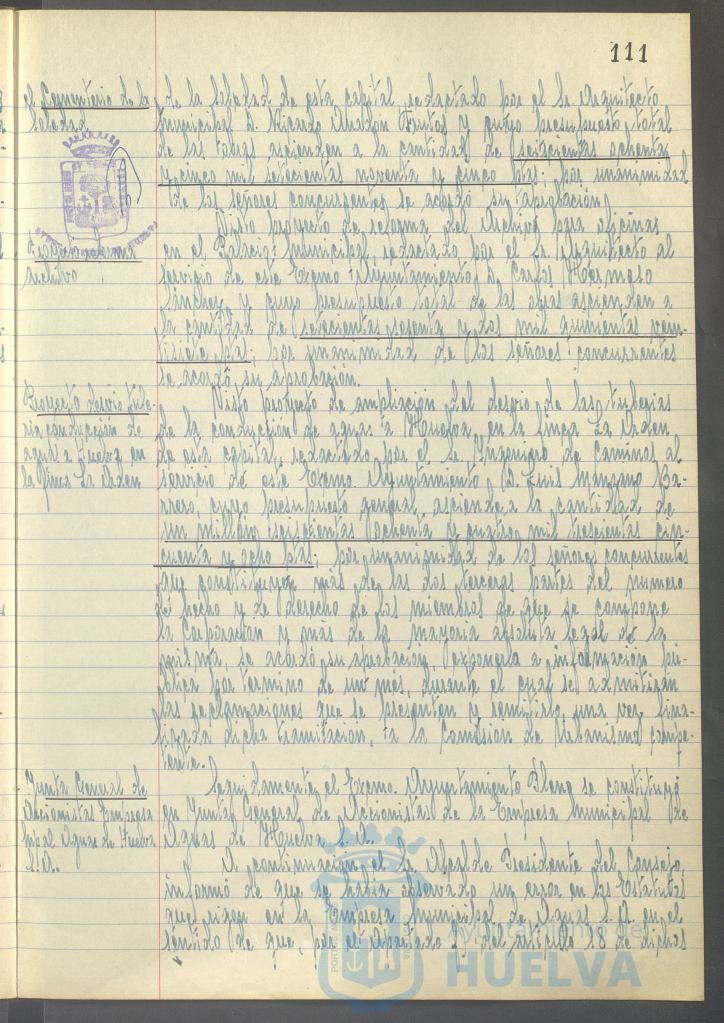 111
el Cementerio de la
Soledad
de la Soledad de esta capital, redactado por el Sr. Arquitecto
Municipal D. Ricardo Anadón Frutos y cuyo presupuesto total
de las obras ascienden a la cantidad de seiscientas ochenta
y cinco mil setecientas noventa y cinco ptas. por unanimidad
de los señores concurrentes se acordó su aprobación.
archivo
Visto proyecto de reforma del Archivo para oficinas
en el Palacio Municipal, redactado por el Sr. Arquitecto al
servicio de este Excmo. Ayuntamiento D. Carlos Hermoso
Sánchez y cuyo presupuesto total de las obras ascienden a
la cantidad de setecientas sesenta y dos mil quinientas vein-
tisiete ptas, por unanimidad de los señores concurrentes
se acordó su aprobación.
Proyecto desvio tube-
ria conducción de
aguas a Huelva en
la finca La Orden
Visto proyecto de ampliación del desvio de las tuberias
de la conducción de aguas a Huelva, en la finca La Orden
de esta capital, redactado por el Sr. Ingeniero de Caminos al
servicio de este Excmo. Ayuntamiento D. Luis Manzano Ba-
rrero, cuyo presupuesto general asciende a la cantidad de
un millón seiscientas ochenta y cuatro mil trescientas cin-
cuenta y ocho ptas, por unanimidad de los señores concurrentes
que constituyen más de las dos terceras partes del numero
de hecho y de derecho de los miembros de que se compone
la Corporación y más de la mayoria absoluta legal de la
misma, se acordó su aprobación, exponerla a información pú-
blica por termino de un mes, durante el cual se admitiran
las reclamaciones que se presenten y remitirlo, una vez fina-
lizada dicha tramitación, a la Comisión de Urbanismo compe-
tente.
Junta General de
Accionistas Empresa
Mpal Aguas de Huelva
S.A.
Seguidamente el Excmo. Ayuntamiento Pleno se constituyó
en Junta General de Accionistas de la Empresa Municipal de
Aguas de Huelva S.A.
A continuación el Sr. Alcalde Presidente del Consejo,
informó de que se habia observado un error en los Estatutos
que rigen en la Empresa Municipal de Aguas S.A. en el
sentido de que, por el apartado 2º del artículo 18 de dichos
Ayuntamiento de
HUELVA